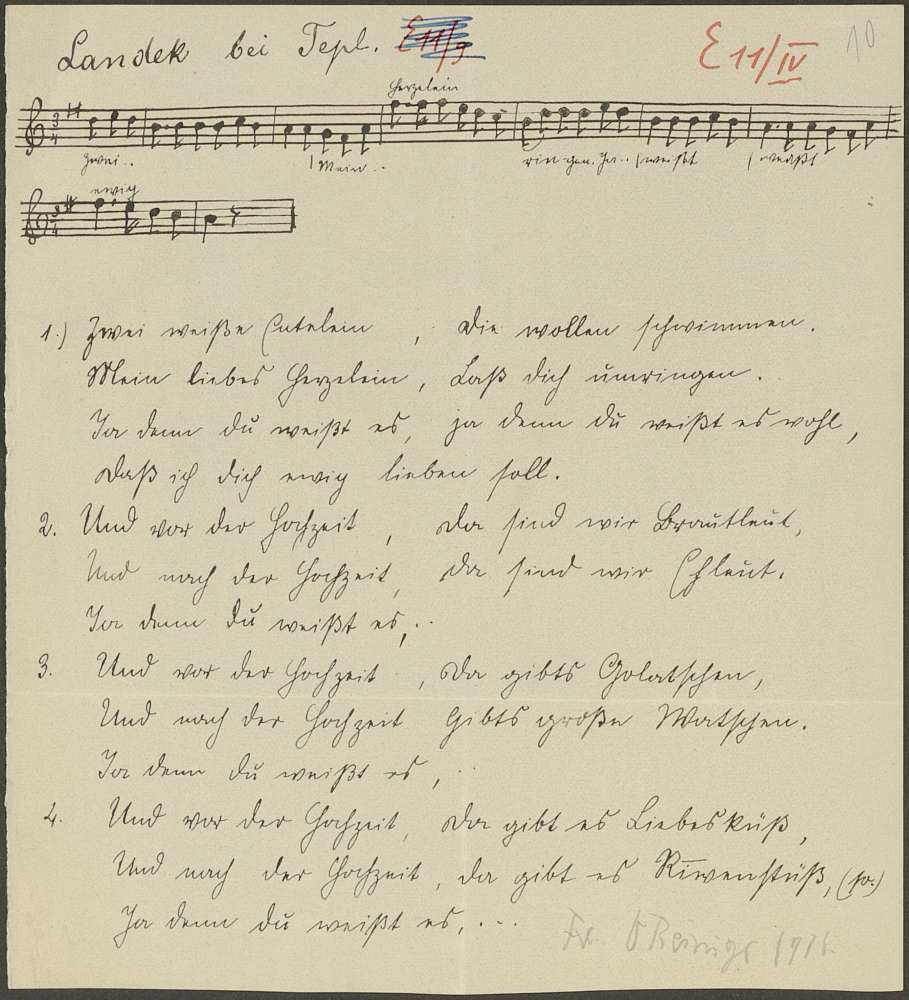 Landek bei Tepl. E 11/9 E 11/IV 10
Herzelein
Zwei .. Mein .. rin-gen. Ja.. weißt weißt
ewig
1.) Zwei weiße Entelein, die wollen schwimmen.
Mein liebes Herzelein, Laß dich umringen.
Ja denn du weißt es, ja denn du weißt es wohl,
Daß ich dich ewig lieben soll.
2. Und vor der Hochzeit, da sind wir Brautleut,
Und nach der Hochzeit, da sind wir Ehleut.
Ja denn du weißt es, ..
3. Und vor der Hochzeit, da gibts Golatschen,
Und nach der Hochzeit gibts große Watschen.
Ja denn du weißt es, ..
4. Und vor der Hochzeit, da gibt es Liebesküß,
Und nach der Hochzeit, da gibt es Riwenstüß, (so.)
Ja denn du weißt es, ...